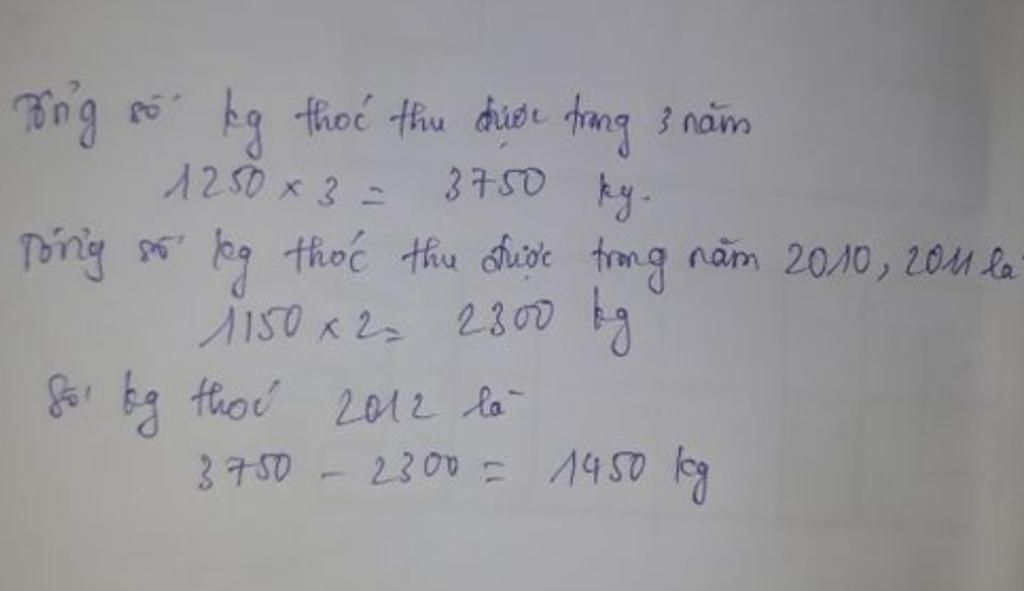 Tổng số kg thóc thu được trong 3 năm
1250 x 3 = 3750 kg.
Tổng số kg thóc thu được trong năm 2010, 2011 là
1150 x 2 = 2300 kg
Số kg thóc 2012 là
3750 - 2300 = 1450 kg